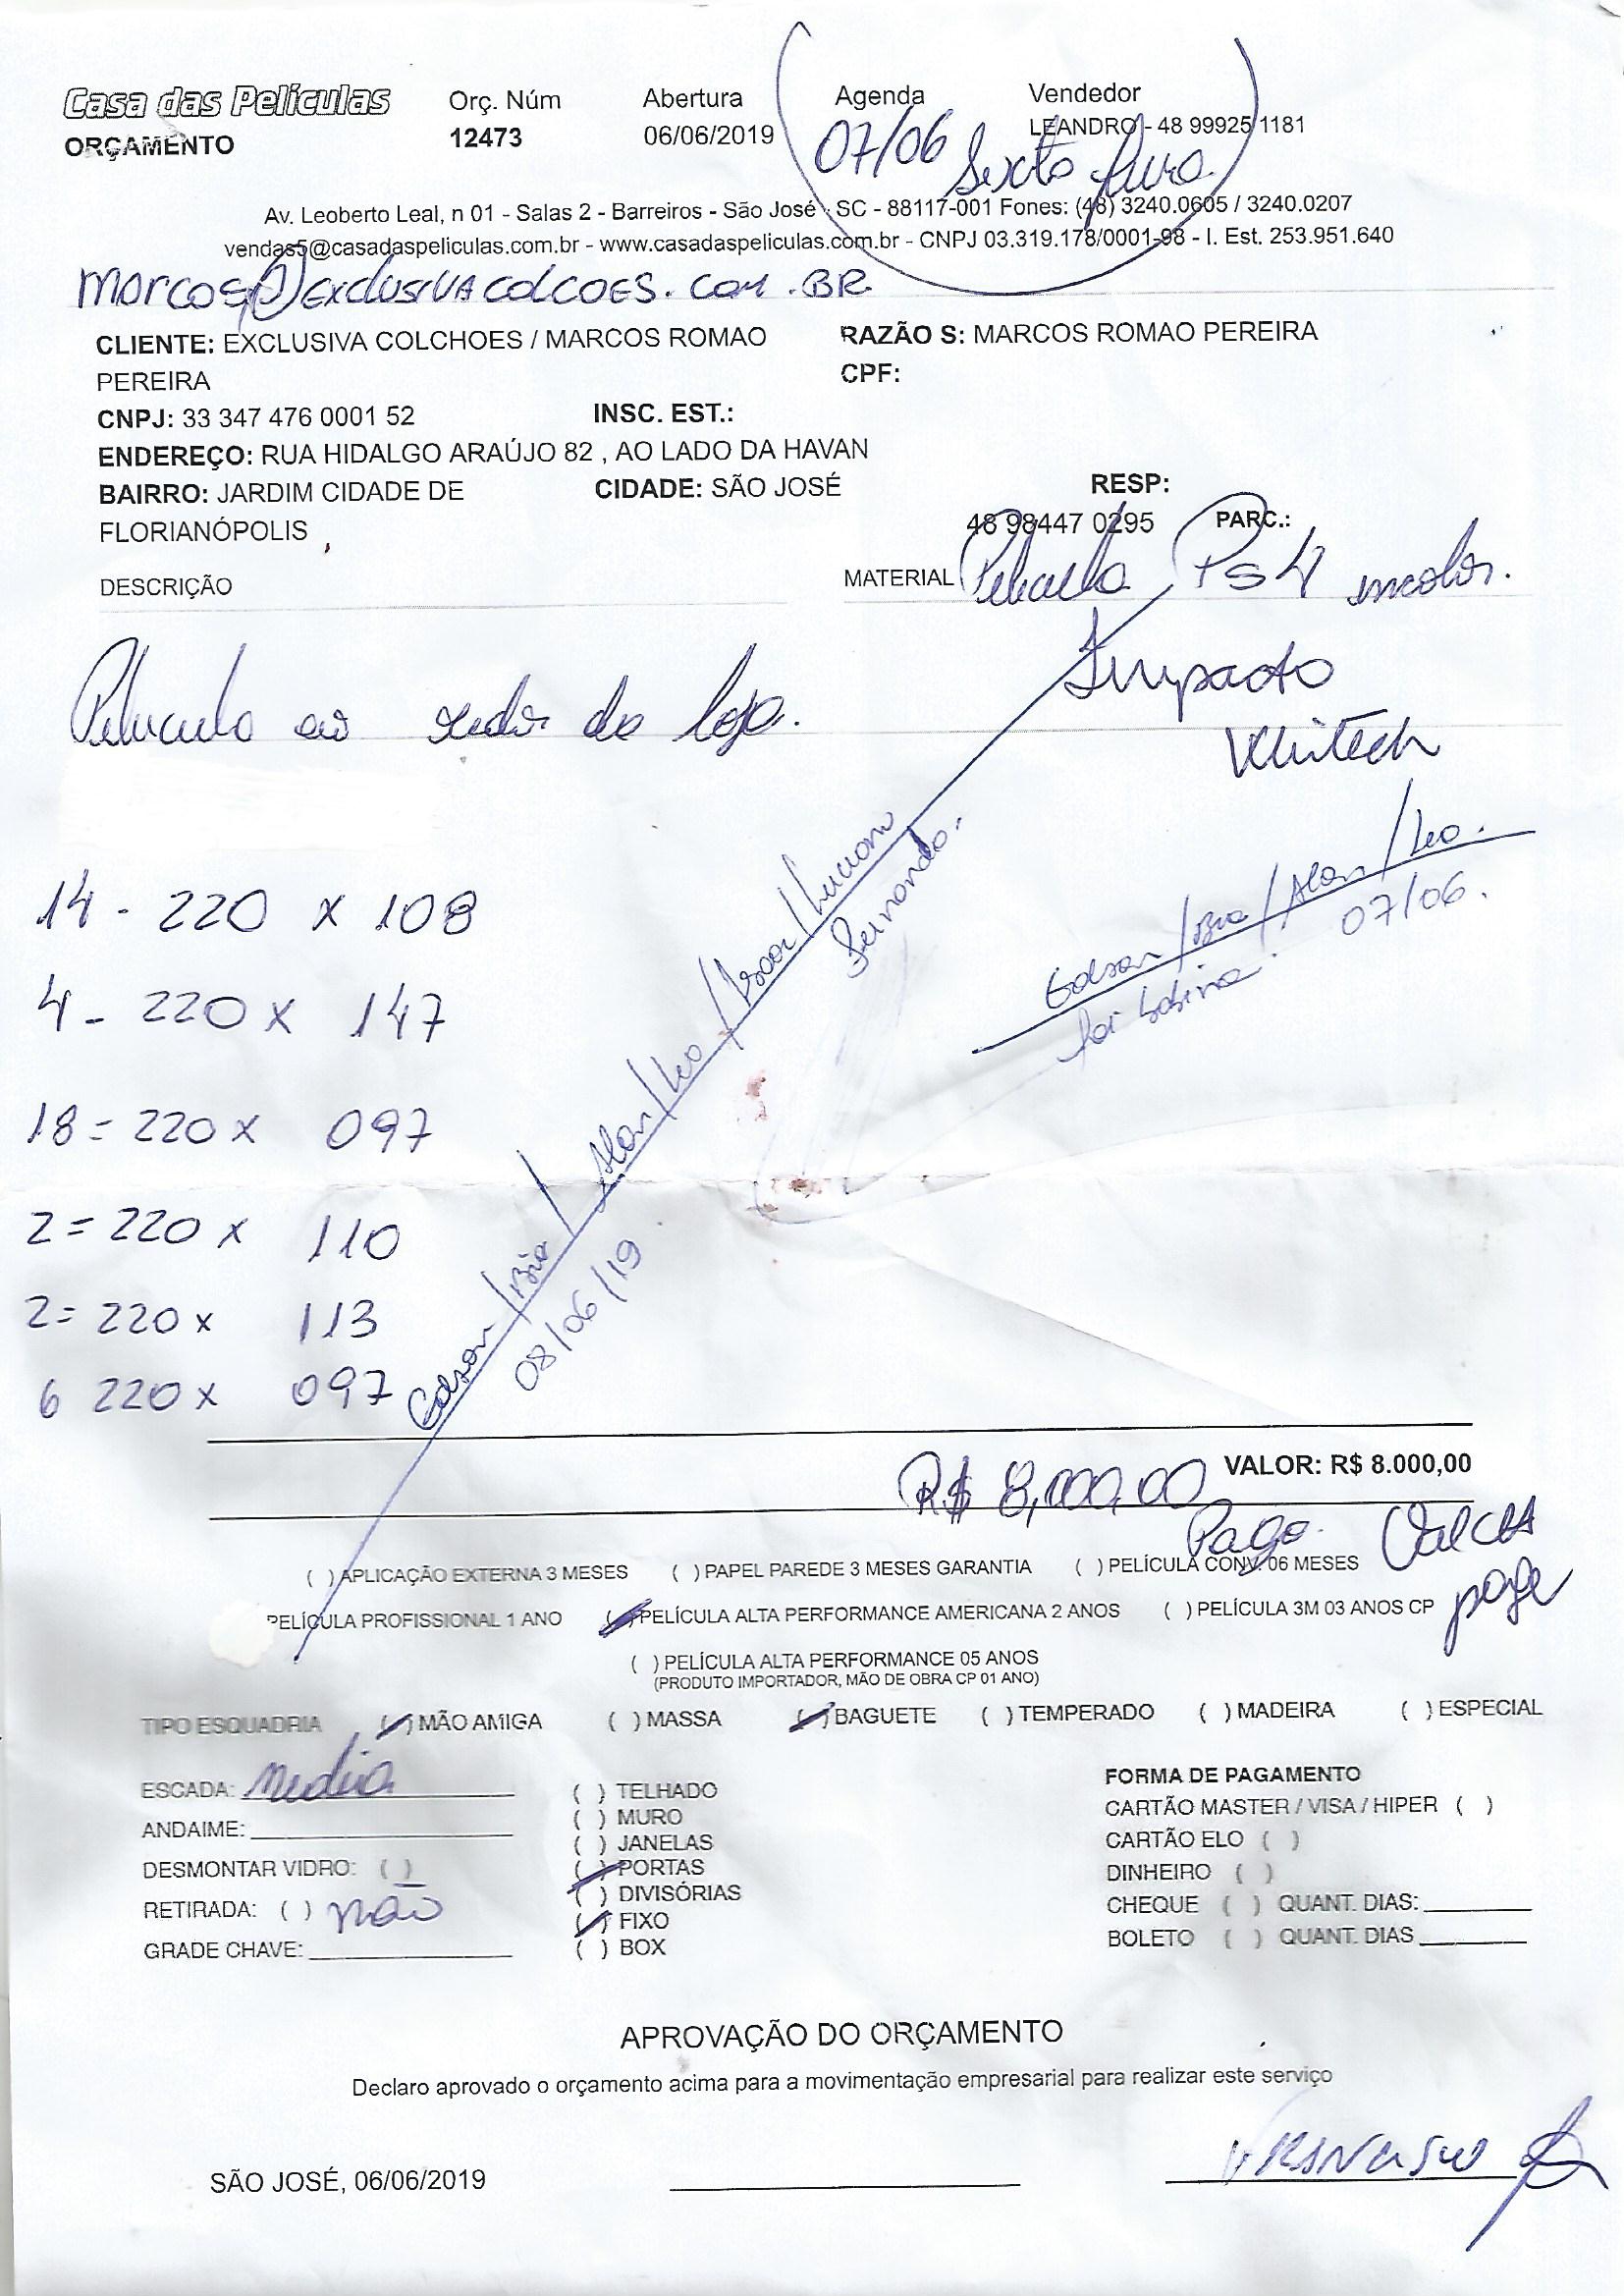 Casa das Películas
ORÇAMENTO
Orç. Núm
12473
Abertura
06/06/2019
Agenda
07/06
Vendedor
LEANDRO - 48 99925 1181
Av. Leoberto Leal, n 01 - Salas 2 - Barreiros - São José - SC - 88117-001 Fones: (48) 3240.0605 / 3240.0207
vendas5@casadaspeliculas.com.br - www.casadaspeliculas.com.br - CNPJ 03.319.178/0001-98 - I. Est. 253.951.640
marcos@EXCLUSIVACOLCOES.COM.BR
CLIENTE: EXCLUSIVA COLCHOES / MARCOS ROMAO
PEREIRA
RAZÃO S: MARCOS ROMAO PEREIRA
CPF:
CNPJ: 33 347 476 0001 52 INSC. EST.:
ENDEREÇO: RUA HIDALGO ARAÚJO 82 , AO LADO DA HAVAN
BAIRRO: JARDIM CIDADE DE
FLORIANÓPOLIS
CIDADE: SÃO JOSÉ
RESP:
48 98447 0295 PARC.:
DESCRIÇÃO
MATERIAL Pelicula PS4 incolor.
Impacto
Pelicula ao redor da loja.
14 - 220 x 108
4 - 220 x 147
18 = 220 x 097
2 = 220 x 110
2 = 220 x 113
6 220 x 097
Edson / Bia / Alan / Leo / Isaac / Luciano
Fernando.
08/06/19
Edson / Bia / Alan / Leo.
07/06.
R$ 8,000,00 VALOR: R$ 8.000,00
Pago.
( ) APLICAÇÃO EXTERNA 3 MESES ( ) PAPEL PAREDE 3 MESES GARANTIA ( ) PELÍCULA CONV. 06 MESES
PELÍCULA PROFISSIONAL 1 ANO ( ) PELÍCULA ALTA PERFORMANCE AMERICANA 2 ANOS ( ) PELÍCULA 3M 03 ANOS CP
( ) PELÍCULA ALTA PERFORMANCE 05 ANOS
(PRODUTO IMPORTADOR, MÃO DE OBRA CP 01 ANO)
TIPO ESQUADRIA ( ) MÃO AMIGA ( ) MASSA ( ) BAGUETE ( ) TEMPERADO ( ) MADEIRA ( ) ESPECIAL
ESCADA: media
ANDAIME:
DESMONTAR VIDRO: ( )
RETIRADA: ( ) não
GRADE CHAVE:
( ) TELHADO
( ) MURO
( ) JANELAS
( ) PORTAS
( ) DIVISÓRIAS
( ) FIXO
( ) BOX
FORMA DE PAGAMENTO
CARTÃO MASTER / VISA / HIPER ( )
CARTÃO ELO ( )
DINHEIRO ( )
CHEQUE ( ) QUANT. DIAS:
BOLETO ( ) QUANT. DIAS
APROVAÇÃO DO ORÇAMENTO
Declaro aprovado o orçamento acima para a movimentação empresarial para realizar este serviço
SÃO JOSÉ, 06/06/2019